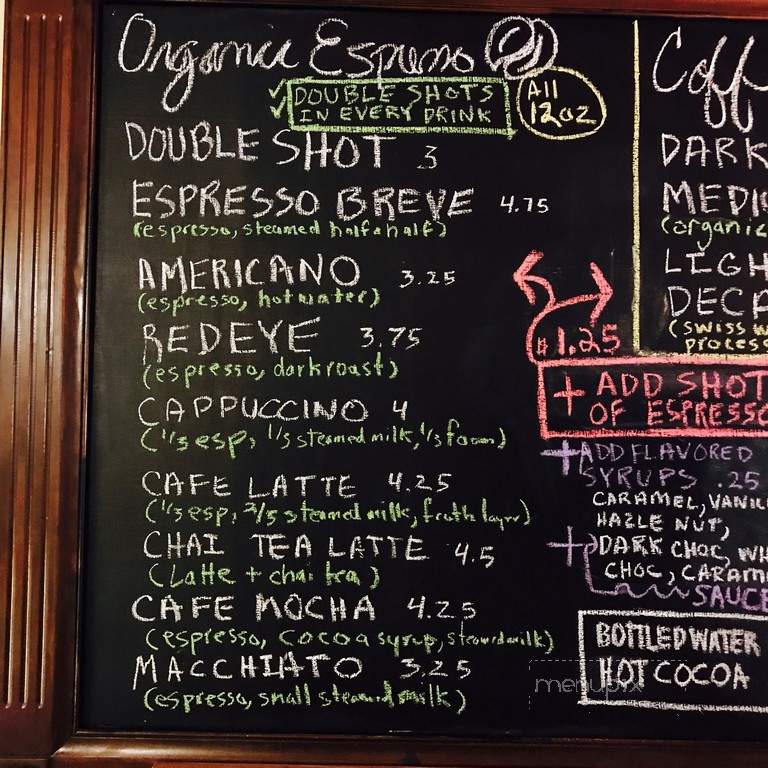 Organic Espresso
DOUBLE SHOTS
IN EVERY DRINK
All
12oz
DOUBLE SHOT 3
ESPRESSO BREVE 4.75
(espresso, steamed half & half)
AMERICANO 3.25
(espresso, hot water)
REDEYE 3.75
(espresso, dark roast)
CAPPUCCINO 4
(1/3 esp, 1/3 steamed milk, 1/3 foam)
CAFE LATTE 4.25
(1/3 esp, 2/3 steamed milk, froth layer)
CHAI TEA LATTE 4.5
(Latte + chai tea)
CAFE MOCHA 4.25
(espresso, cocoa syrup, steamed milk)
MACCHIATO 3.25
(espresso, small steamed milk)
Coff
DARK
MEDI
(organic
LIGH
DECA
(swiss w
process
$1.25
+ ADD SHOT
OF ESPRESSO
+ ADD FLAVORED
SYRUPS .25
CARAMEL, VANIL
HAZLE NUT,
+ DARK CHOC, WH
CHOC, CARAM
SAUCE
BOTTLED WATER
HOT COCOA
menupix